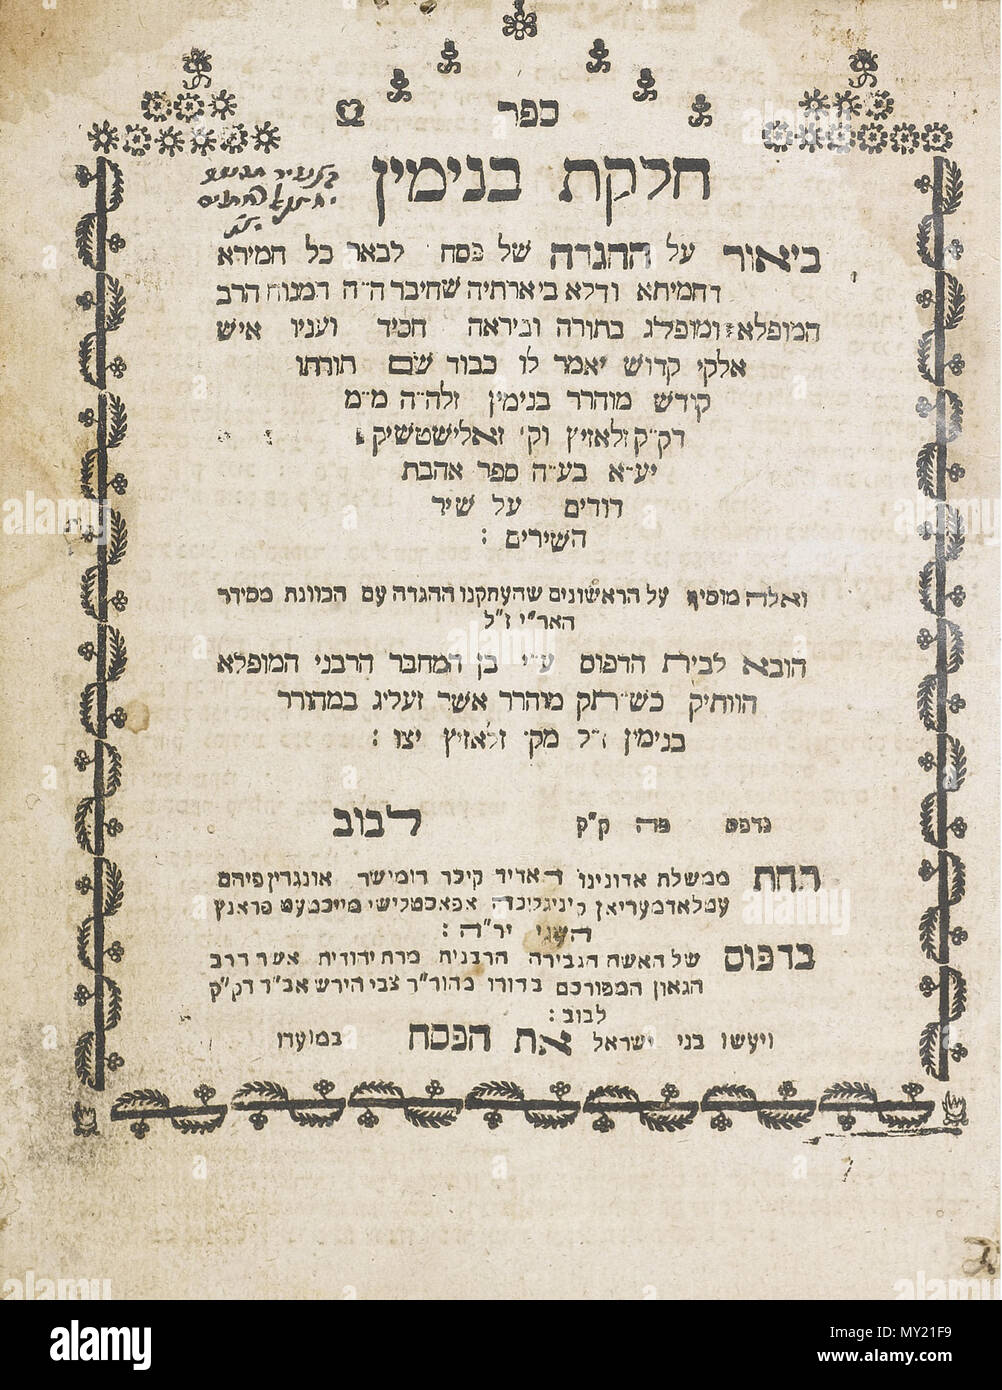 ספר
חלקת בנימין
ביאור על ההגדה של פסח לבאר כל חמירא
דחמיתא ודלא ביארתיה שחיבר ה״ה המנוח הרב
המופלא ומופלג בתורה וביראה חסיד ועניו איש
אלקי קדוש יאמר לו כבוד שם תורתו
קודש מוהרר בנימין זלה״ה מ״מ
דק״ק זלאזיץ וק׳ זאלישטשיק
יע״א בע״ה ספר אהבת
דודים על שיר
השירים :
ואלה מוסיף על הראשונים שהעתקנו ההגדה עם הכוונת מסידר
האר״י ז״ל
הובא לבית הדפוס ע״י בן המחבר הרבני המופלא
הוותיק כש״ת מוהרר אשר זעליג במהורר
בנימין ז״ל מק׳ זלאזיץ יצו :
נדפס פה ק״ק לבוב
תחת ממשלת אדונינו האדיר קיסר רומישר אונגרין פיהם
עטלאדמעריאן קיניגליכה אפאסטלישי מייכטעט פראנץ
השני יר״ה :
בדפוס של האשה הגבירה הרבנית מרת יהודית אשר דרב
הגאון המפורסם בדורו מהור״ר צבי הירש אב״ד דק״ק
לבוב :
ויעשו בני ישראל את הפסח במועדו
alamy
alamy
MY21F9
www.alamy.com